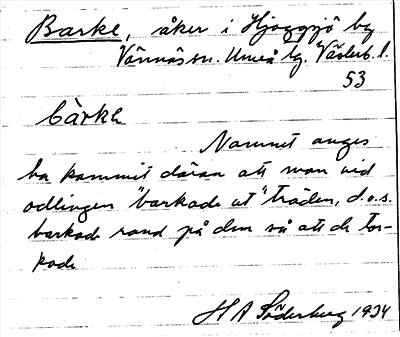 Barke, åker i Hjoggsjö by
Vännäs sn. Umeå lg. Västerb. l.
53
bàrka
Namnet anges
ha kommit därav att man vid
odlingen "barkade ut" träden, d.v.s.
barkade rand på dem så att de tor-
kade
H A Söderberg 1934